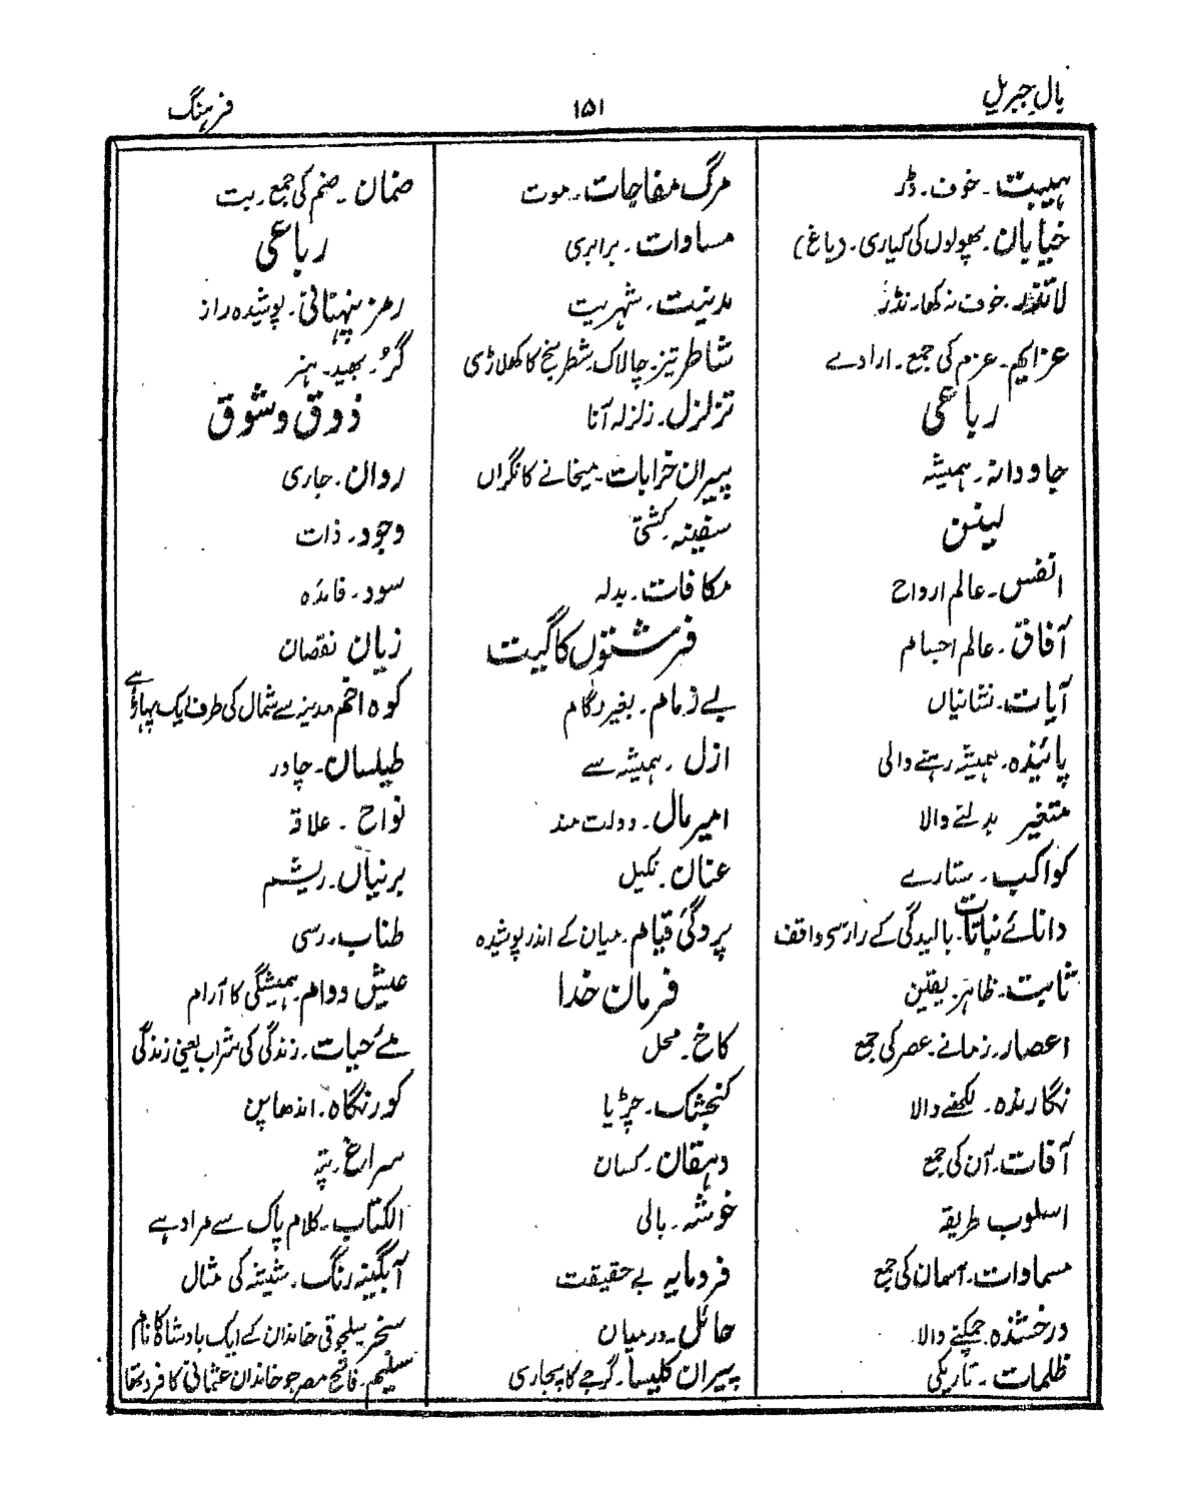 بالِ جبریل
۱۵۱
فرہنگ
ہیبت۔ خوف۔ ڈر
خیابان۔ پھولوں کی کیاری۔ (باغ)
لاتخف۔ خوف نہ کھا۔ نڈر
عزایم۔ عزم کی جمع۔ ارادے
رباعی
جاودانہ۔ ہمیشہ
لینن
انفس۔ عالم ارواح
آفاق۔ عالم اجسام
آیات۔ نشانیاں
پائیندہ۔ ہمیشہ رہنے والی
متغیر بدلنے والا
کواکب۔ ستارے
دانائے نباتات۔ بالیدگی کے راز سے واقف
ثابت۔ ظاہر۔ یقین
اعصار۔ زمانے۔ عصر کی جمع
نگارندہ۔ لکھنے والا
آفات۔ آن کی جمع
اسلوب طریقہ
سماوات۔ آسمان کی جمع
درخشندہ۔ چمکنے والا۔
ظلمات۔ تاریکی
مرگ مفاجات۔ موت
مساوات۔ برابری
مدنیت۔ شہریت
شاطر تیز۔ چالاک۔ شطرنج کا کھلاڑی
تزلزل۔ زلزلہ آنا
پیران خرابات۔ میخانے کا نگراں
سفینہ۔ کشتی
مکافات۔ بدلہ
فرشتوں کا گیت
بے زمام۔ بغیر لگام
ازل۔ ہمیشہ سے
امیر مال۔ دولت مند
عنان۔ نکیل
پردگئ قیام۔ میان کے اندر پوشیدہ
فرمان خدا
کاخ۔ محل
کنجشک۔ چڑیا
دہقان۔ کسان
خوشہ۔ بالی
فرومایہ بے حقیقت
حائل۔ درمیان
پیران کلیسا۔ گرجے کا پجاری
صنمان۔ صنم کی جمع۔ بت
رباعی
رمز پنہانی۔ پوشیدہ راز
گُر۔ بھید۔ ہنر
ذوق و شوق
رواں۔ جاری
وجود۔ ذات
سود۔ فائدہ
زیان نقصان
کوہ اضم مدینہ سے شمال کی طرف ایک پہاڑ ہے
طیلسان۔ چادر
نواح۔ علاقہ
برنیاں۔ ریشم
طناب۔ رسی
عیش دوام۔ ہمیشگی کا آرام
مئے حیات۔ زندگی کی شراب یعنی زندگی
کور نگاہ۔ اندھا پن
سراغ۔ پتہ
الکتاب۔ کلام پاک سے مراد ہے
آبگینہ رنگ۔ شیشہ کی مثال
سنجر سلجوقی خاندان کے ایک بادشاہ کا نام
سلیم۔ فاتح مصر جو خاندان عثمانی کا فرد تھا